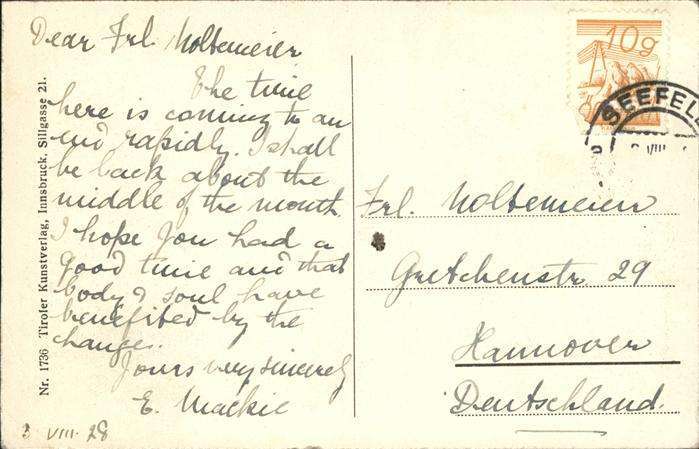 Dear Frl. Noltemeier
The time
here is coming to an
end rapidly. I shall
be back about the
middle of the month.
I hope you had a
good time and that
body & soul have
benefited by the
change.
Yours very sincerely
E. Mackie
3 VIII. 28
Nr. 1736 Tiroler Kunstverlag, Innsbruck, Sillgasse 21.
10g
SEEFEL
VIII
Frl. Noltemeier
Gretchenstr 29
Hannover
Deutschland.